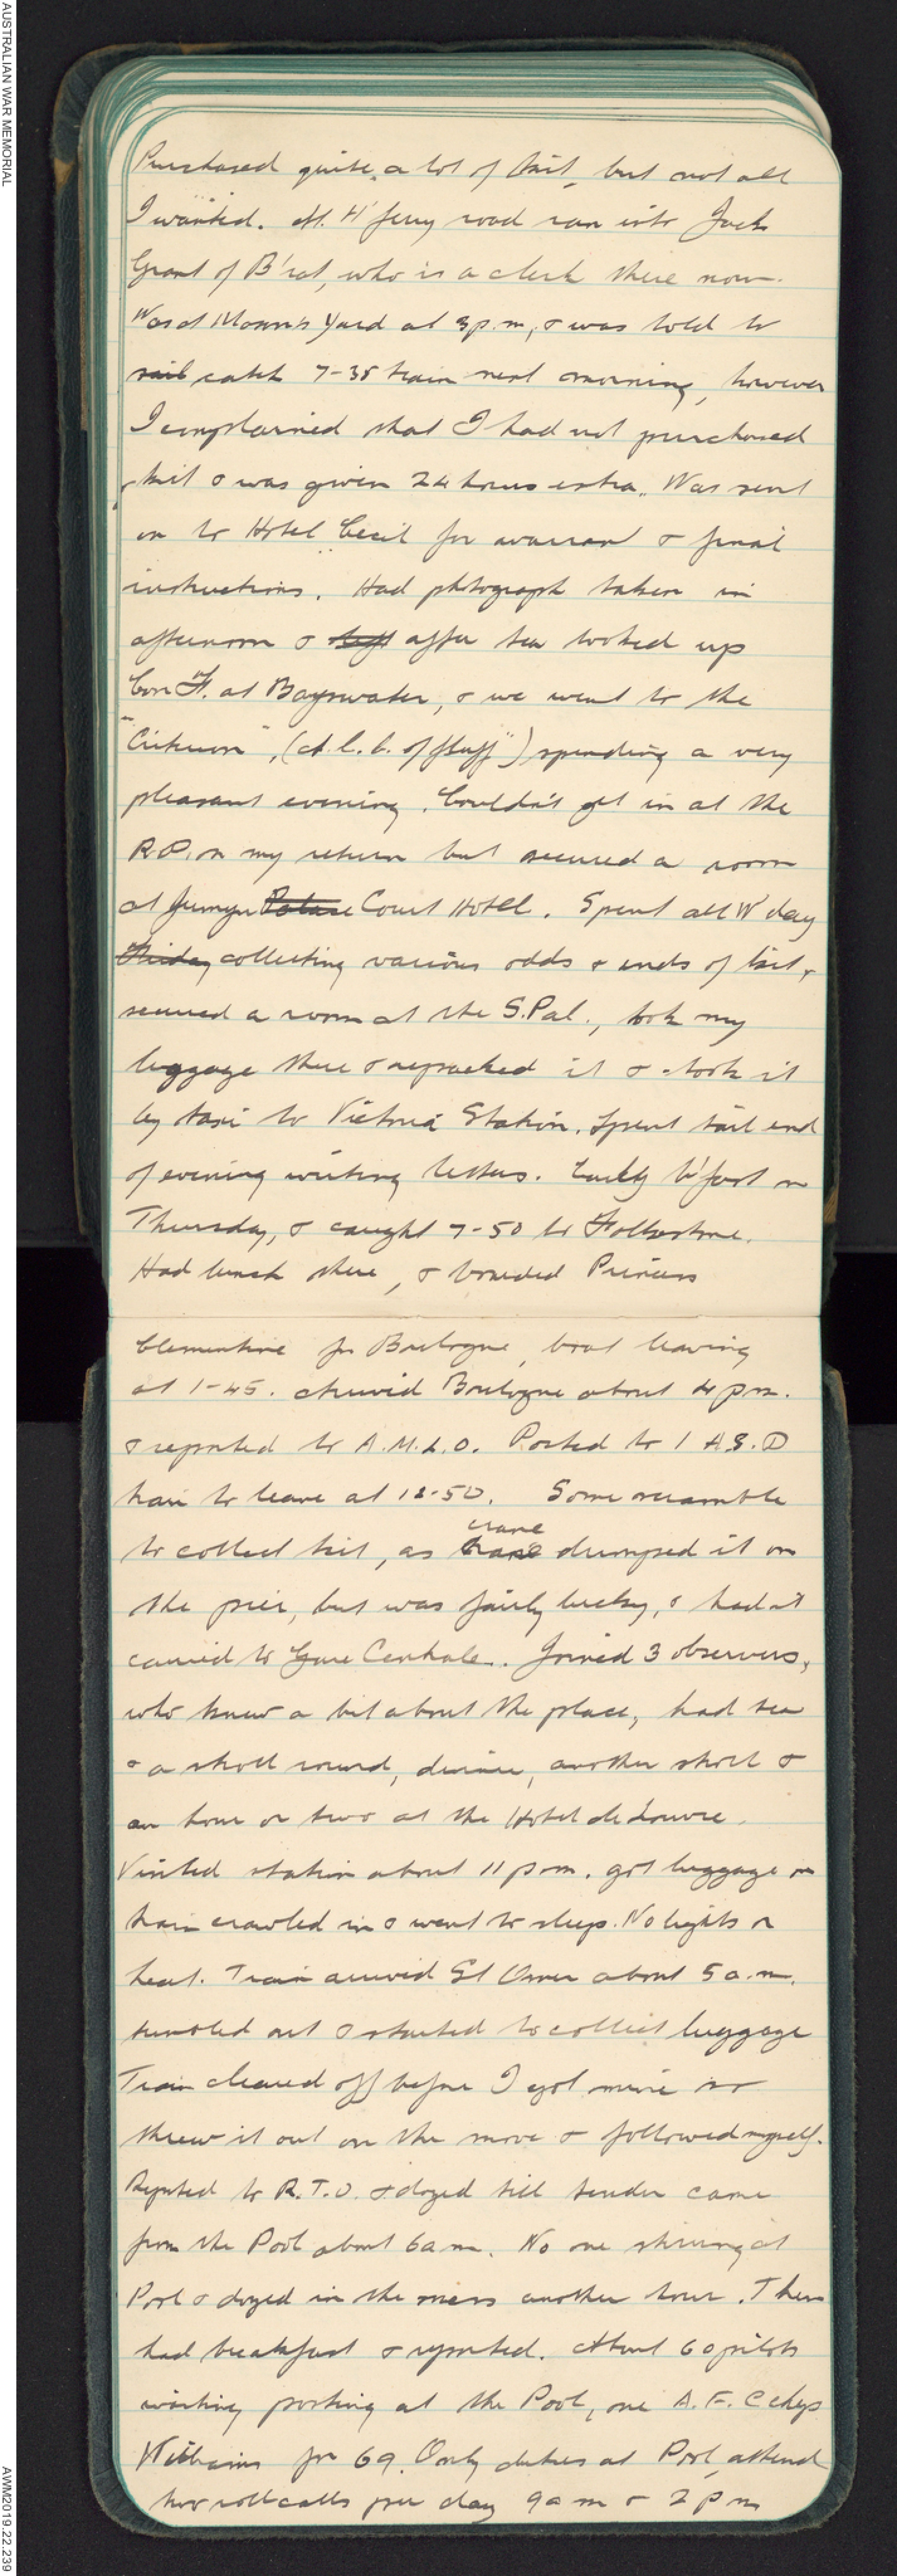 Purchased quite a lot of kit, but not all
I wanted. At H'ferry road ran into Jack
Grant of B'rat, who is a clerk there now.
Was at Mason's Yard at 3 p.m, & was told to
catch 7-35 train next morning, however
I complained that I had not purchased
kit & was given 24 hours extra. Was sent
on to Hotel Cecil for warrant & final
instructions. Had photograph taken in
afternoon & after tea looked up
Con F. at Bayswater, & we went to the
"Criterion", (A. L. B. of fluff") spending a very
pleasant evening. Couldn't get in at the
R.P. on my return but secured a room
at Jermyn Palace Court Hotel. Spent all W'day
Friday collecting various odds & ends of kit,
secured a room at the S.Pal., took my
luggage there & repacked it & took it
by taxi to Victoria Station. Spent tail end
of evening writing letters. Early b'fast on
Thursday, & caught 7-50 to Folkestone.
Had lunch there, & boarded Princess
Clementine for Boulogne, boat leaving
at 1-45. Arrived Boulogne about 4 pm.
& reported to A.M.L.O. Posted to 1 A.S.D
train to leave at 12-50. Some scramble
crane
to collect kit, as dumped it on
the pier, but was fairly lucky, & had it
carried to Gare Centrale. Joined 3 observers,
who knew a bit about the place, had tea
& a stroll round, dinner, another stroll &
an hour or two at the Hotel de Louvre.
Visited station about 11 pm. got luggage on
train crawled in & went to sleep. No lights or
heat. Train arrived St Omer about 5 a.m.
tumbled out & started to collect luggage
Train cleared off before I got mine so
threw it out on the move & followed myself.
Reported to R.T.O. & dozed till tender came
from the Pool about 6 a m. No one stirring at
Pool & dozed in the mess another hour. Then
had breakfast & reported. About 60 pilots
waiting posting at the Pool, one A.F.C chap
Williams for 69. Only duties at Pool, attend
two rollcalls per day 9 a m & 2 p m
AUSTRALIAN WAR MEMORIAL
AWM2019.22.239